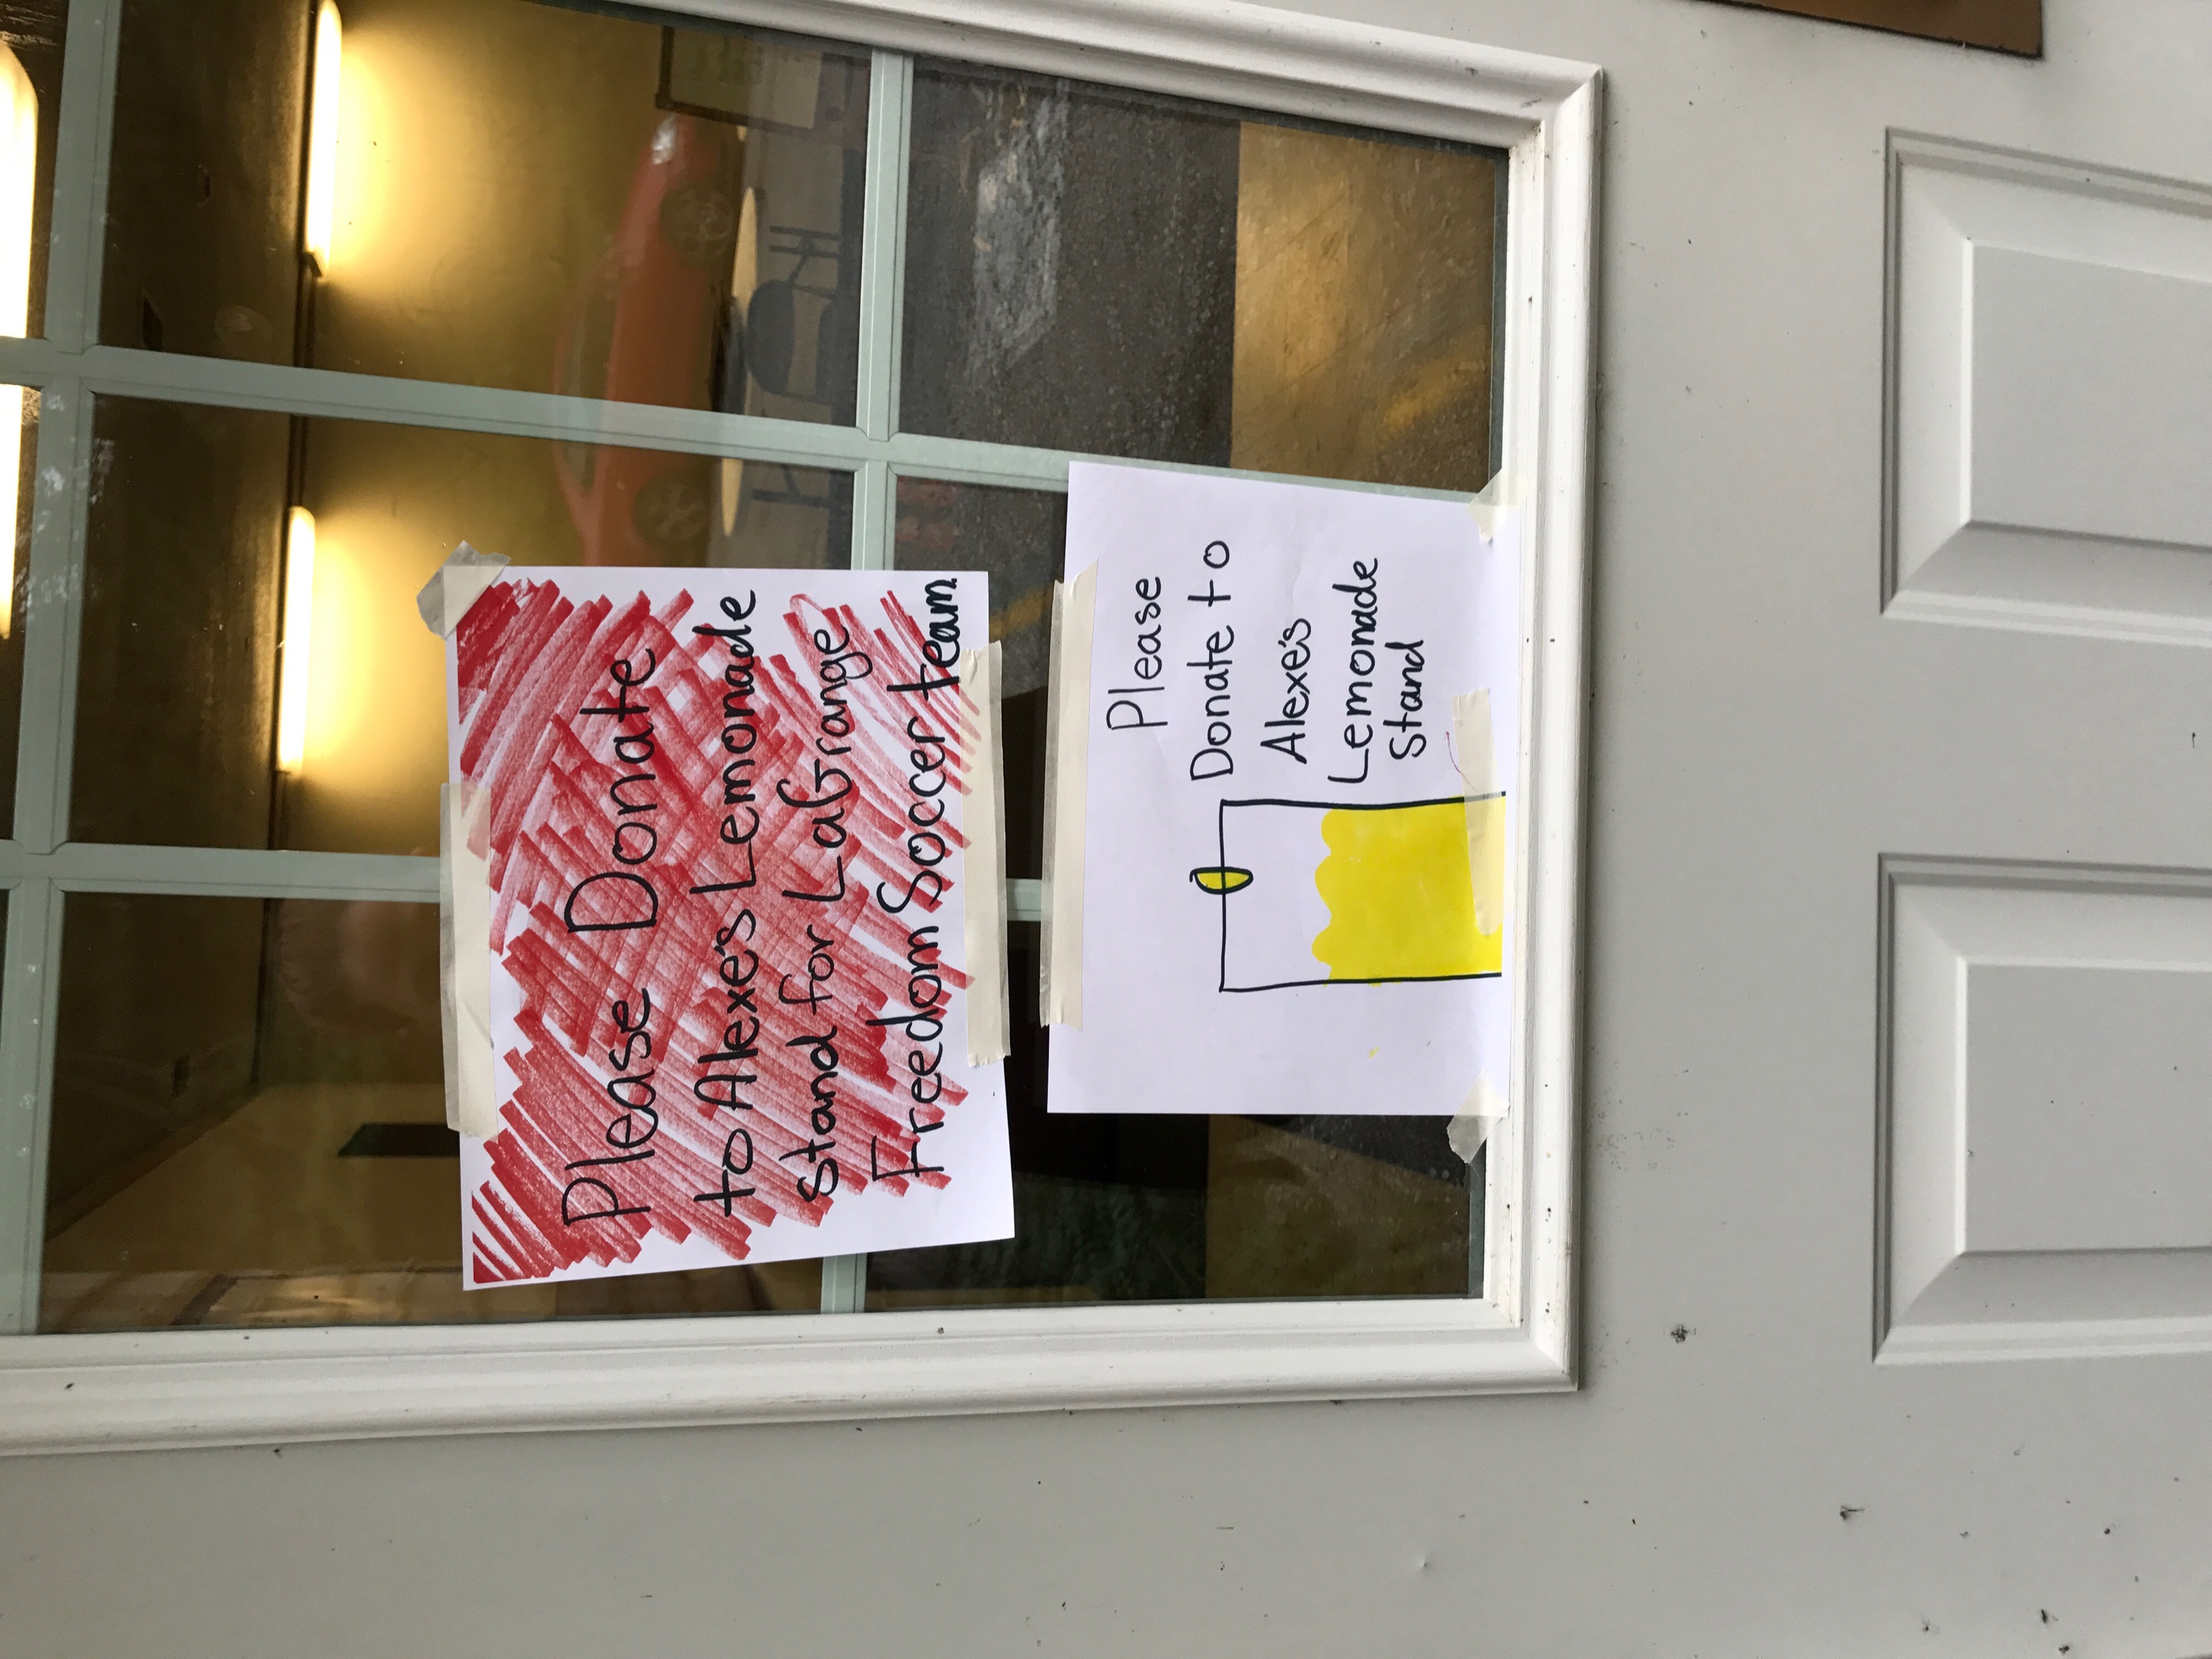 Please Donate
to Alexe's Lemonade
stand for LaGrange
Freedom Soccer team
Please
Donate to
Alexe's
Lemonade
Stand